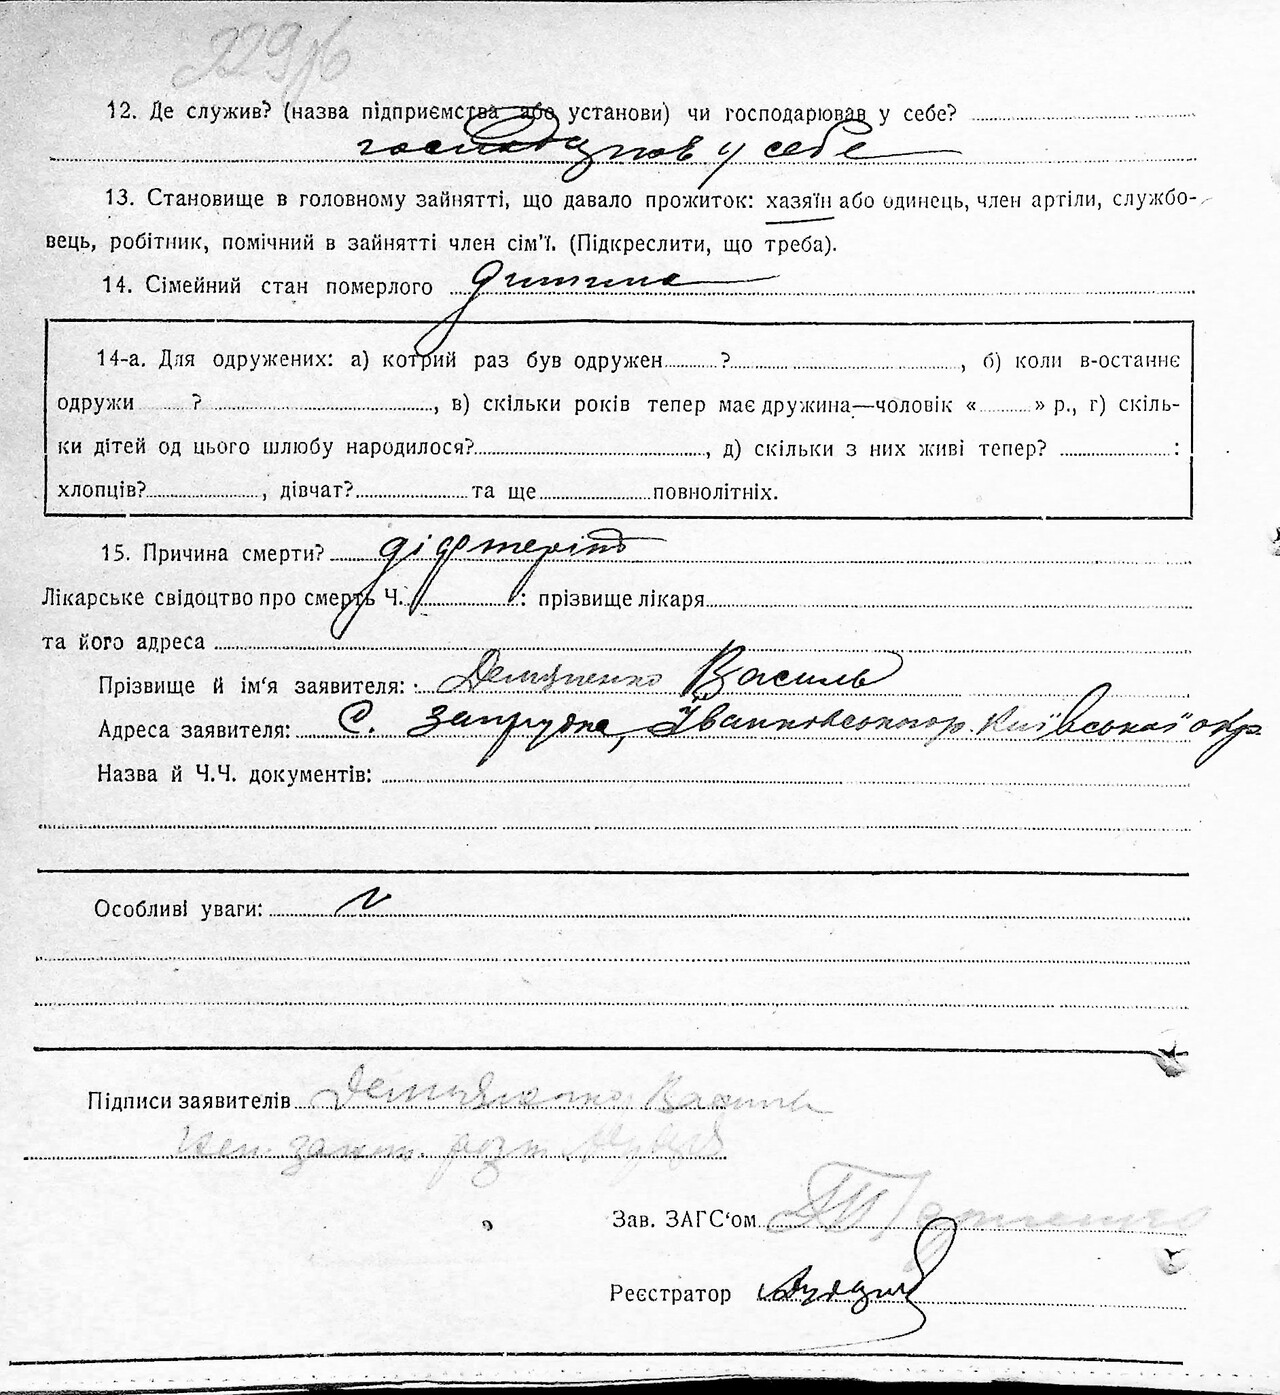 229зв
12. Де служив? (назва підприємства або установи) чи господарював у себе?
господарював у себе
13. Становище в головному зайнятті, що давало прожиток: хазяїн або одинець, член артіли, службо-
вець, робітник, помічний в зайнятті член сім'ї. (Підкреслити, що треба).
14. Сімейний стан померлого дитина
14-а. Для одружених: а) котрий раз був одружен ? , б) коли в-останнє
одружи ? , в) скільки років тепер має дружина—чоловік « » р., г) скіль-
ки дітей од цього шлюбу народилося? , д) скільки з них живі тепер? :
хлопців? , дівчат? та ще повнолітніх.
15. Причина смерти? діфтеріт
Лікарське свідоцтво про смерть Ч. : прізвище лікаря
та його адреса
Прізвище й ім'я заявителя: Демяненко Василь
Адреса заявителя: С. Запрудка, Іванковського р. Київської окр.
Назва й Ч.Ч. документів:
Особливі уваги:
Підписи заявителів Демяненко Василь
Зав. ЗАГС'ом
Реєстратор